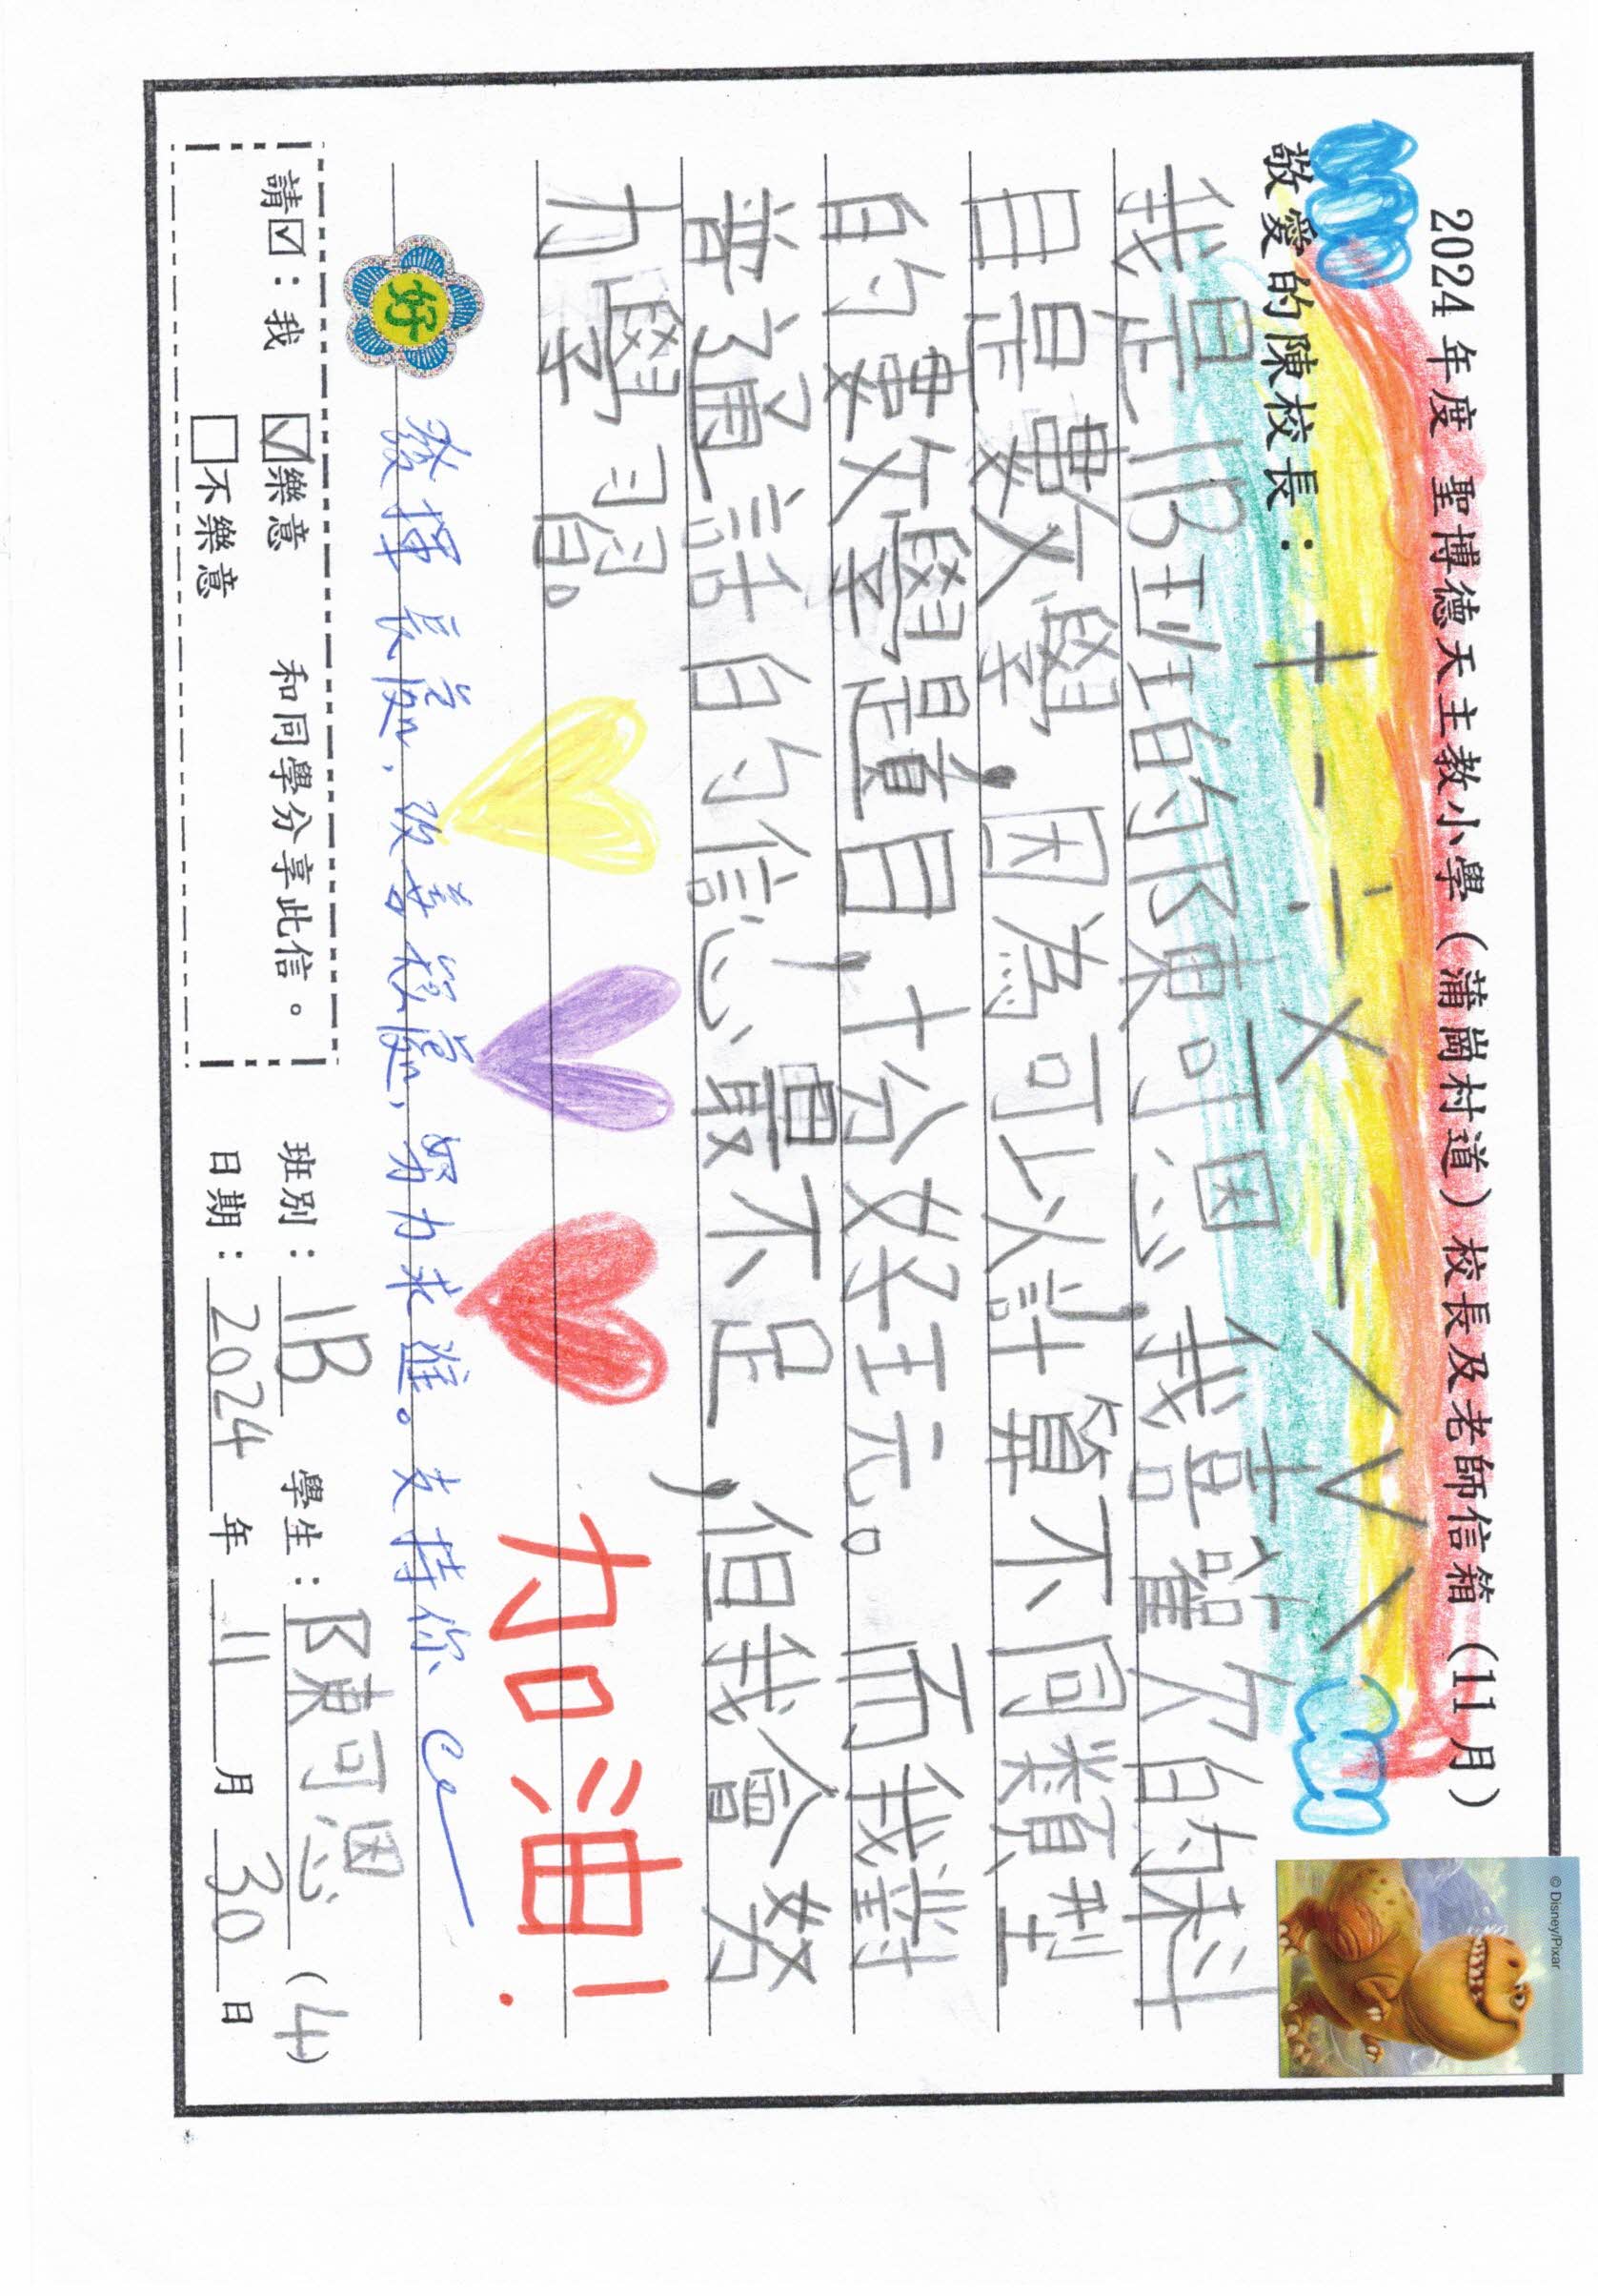 2024 年度 聖博德天主教小學（蒲崗村道）校長及老師信箱（11 月）
© Disney/Pixar
敬愛的陳校長：
＋ － ÷ × － ＞ ＜ ＞
我是1B班的陳可恩，我喜躍你的科
目是數學，因為可以計算不同類型
的數學題目，十分好玩。而我對
普通話的信心最不足，但我會努
力學習。
加油！
好
發揮長處，改善弱處，努力求進。支持你
請☑：我 ☑樂意 □不樂意 和同學分享此信。
班別：1B 學生：陳可恩（4）
日期：2024 年 11 月 30 日